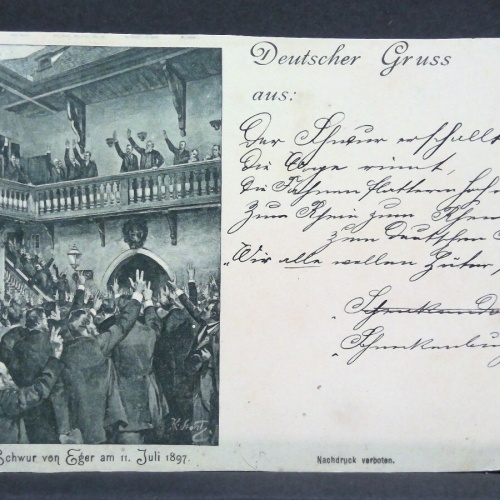 Deutscher Gruss
aus:
Der Schwur erschallt
die Woge rinnt,
die Fahnen flattern hoch
Zum Rhein zum Rhein
zum Deutschen
„Wir alle wollen Hüter
Schneckenburg
Schwur von Eger am 11. Juli 1897.
Nachdruck verboten.